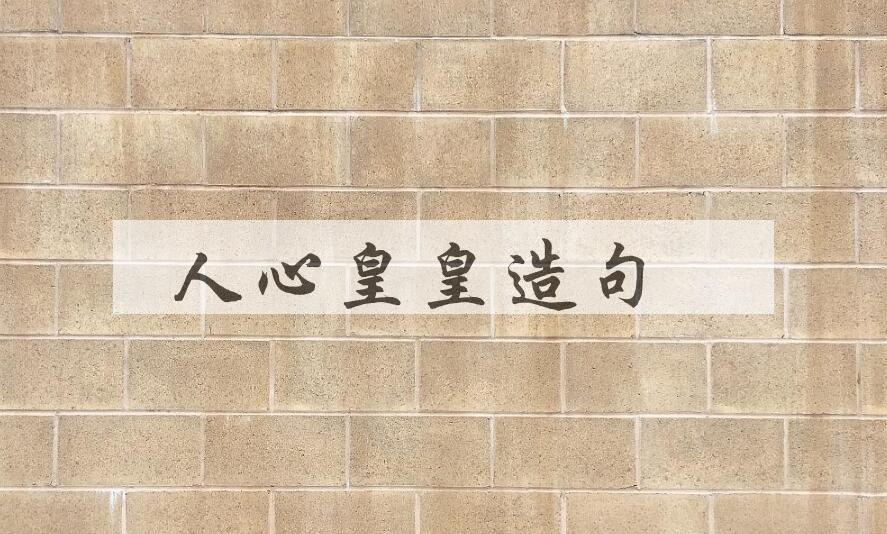 人心皇皇造句